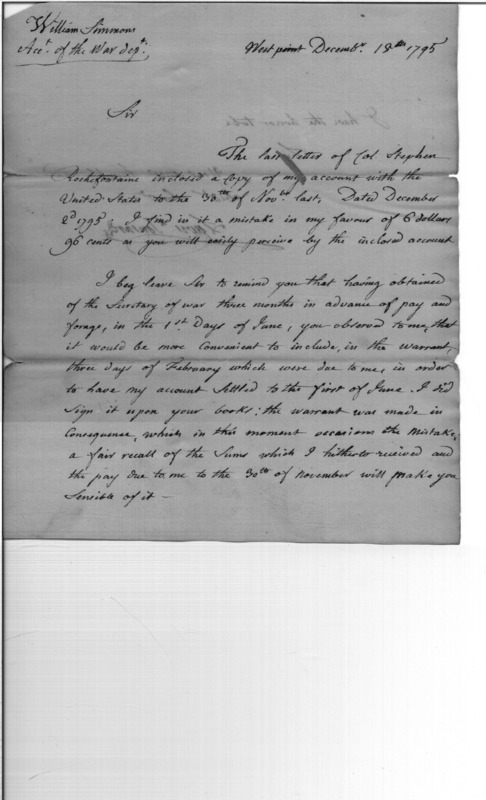 William Simmons
Acct. of the War Dept.;
West point Decembr. 18th 1795
Sir
The last letter of Col Stephen
Rochefontaine inclosed a Copy of my account with the
United States to the 30th of Novbr. last, Dated December
2d 1795. I find in it a mistake in my favour of 6 dollars
96 cents as you will easily perceive by the inclosed account
I beg leave Sir to remind you that having obtained
of the Secretary of war three months in advance of pay and
forage, in the 1st Days of June, you observed to me, that
it would be more Convenient to include, in the warrant,
three days of February which were due to me, in order
to have my account Settled to the first of June. I did
Sign it upon your books: the warrant was made in
Consequence, which in this moment occasions the mistake,
a fair recall of the Sums which I hitherto received and
the pay due to me to the 30th of November will make you
Sensible of it —
I have the honor to be